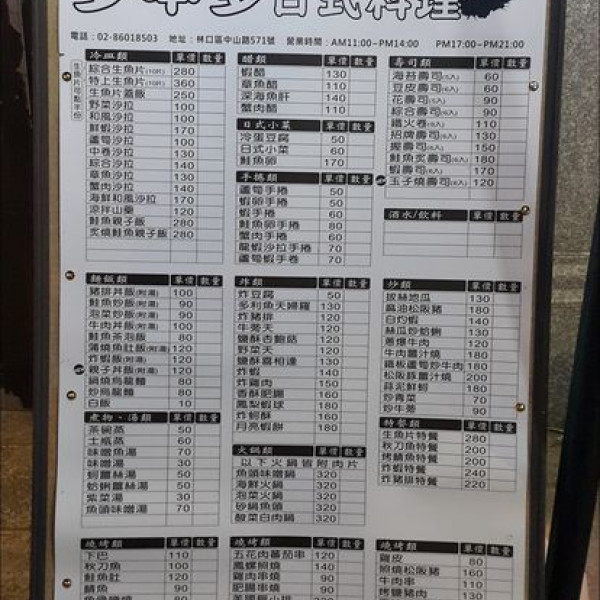 日式料理
電話：02-86018503 地址：林口區中山路571號 營業時間：AM11:00~PM14:00 PM17:00~PM21:00
生魚片可點半份
冷皿類 單價 數量
綜合生魚片(10片) 280
特上生魚片(10片) 360
生魚片蓋飯 250
野菜沙拉 100
和風沙拉 100
鮮蝦沙拉 170
蘆筍沙拉 100
中卷沙拉 130
綜合沙拉 140
章魚沙拉 130
蟹肉沙拉 140
海鮮和風沙拉 170
涼拌山藥 120
鮭魚親子飯 280
炙燒鮭魚親子飯 280
醋類 單價 數量
蝦醋 130
章魚醋 110
深海魚肝 140
蟹肉醋 110
日式小菜 單價 數量
冷蛋豆腐 50
日式小菜 60
鮭魚卵 170
手捲類 單價 數量
蘆筍手捲 50
蝦卵手捲 50
蝦手捲 60
鮭魚卵手捲 80
蟹肉手捲 60
龍蝦沙拉手捲 70
蘆筍蝦手卷 70
壽司類 單價 數量
海苔壽司(5入) 60
豆皮壽司(6入) 60
花壽司(5入) 90
綜合壽司(6入) 90
鐵火卷(6入) 110
招牌壽司(5入) 130
握壽司(5入) 150
鮭魚炙壽司(6入) 180
蝦壽司(6入) 170
玉子燒壽司(6入) 120
酒水/飲料 單價 數量
麵飯類 單價 數量
豬排丼飯(附湯) 100
鮭魚炒飯(附湯) 90
泡菜炒飯(附湯) 90
牛肉丼飯(附湯) 100
鮭魚茶泡飯 80
蒲燒魚肚飯(附湯) 120
炸蝦飯(附湯) 120
親子丼飯(附湯) 120
鍋燒烏龍麵 80
炒烏龍麵 80
白飯 10
煮物、湯類 單價 數量
茶碗蒸 50
土瓶蒸 60
味噌魚湯 70
味噌湯 30
蚵薑絲湯 50
蛤蜊薑絲湯 50
紫菜湯 30
魚頭味噌湯 70
炸類 單價 數量
炸豆腐 50
多利魚天婦羅 130
炸豬排 120
牛蒡天 120
鹽酥杏鮑菇 120
野菜天 120
鹽酥喜相逢 130
炸蝦 140
炸雞肉 150
香酥肥腸 160
鳳梨蝦球 180
炸蚵酥 160
月亮蝦餅 180
火鍋類 單價 數量
以下火鍋皆附肉片
魚頭味噌鍋 320
海鮮火鍋 320
泡菜火鍋 320
砂鍋魚頭 320
酸菜白肉鍋 320
炒類 單價 數量
拔絲地瓜 130
麻油松阪豬 180
白灼蝦 140
絲瓜炒蛤蜊 130
蔥爆牛肉 120
牛肉薑汁燒 180
鐵板蘆筍炒牛肉 180
松阪豚薑汁燒 200
蒜泥鮮蚵 180
炒青菜 70
炒牛蒡 90
特餐類 單價 數量
生魚片特餐 280
秋刀魚特餐 200
烤鯖魚特餐 200
炸蝦特餐 240
炸豬排特餐 220
燒烤類 單價 數量
下巴 110
秋刀魚 100
鮭魚肚 120
鯖魚 90
燒烤類 單價 數量
五花肉蕃茄串 120
鳳螺燒烤 140
雞肉串燒 90
肥腸串燒 90
燒烤類 單價 數量
雞皮 80
照燒松阪豬 160
牛肉串 110
烤鹽豬肉 130